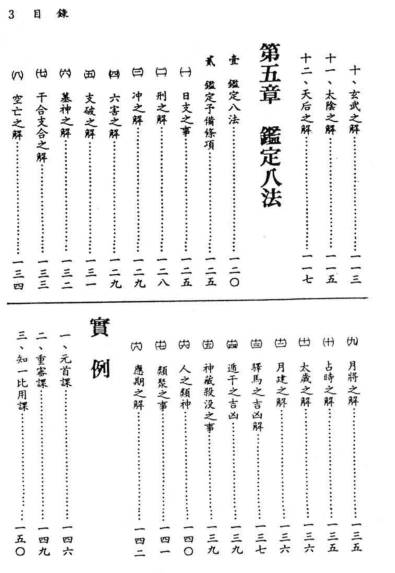 3 目錄
十、玄武之解……………一一三
十一、太陰之解……………一一五
十二、天后之解……………一一七
第五章 鑑定八法
壹 鑑定八法……………一二〇
貳 鑑定予備條項……………一二五
㈠ 日支之事……………一二五
㈡ 刑之解……………一二八
㈢ 冲之解……………一二九
㈣ 六害之解……………一二九
㈤ 支破之解……………一三一
㈥ 墓神之解……………一三二
㈦ 干合支合之解……………一三三
㈧ 空亡之解……………一三四
㈨ 月將之解……………一三五
㈩ 占時之解……………一三五
(十一) 太歲之解……………一三六
(十二) 月建之解……………一三六
(十三) 驛馬之吉凶解……………一三七
(十四) 遁干之吉凶……………一三九
(十五) 神藏殺沒之事……………一三九
(十六) 人之類神……………一四〇
(十七) 類聚之事……………一四一
(十八) 應期之解……………一四二
實例
一、元首課……………一四六
二、重審課……………一四九
三、知一比用課……………一五〇